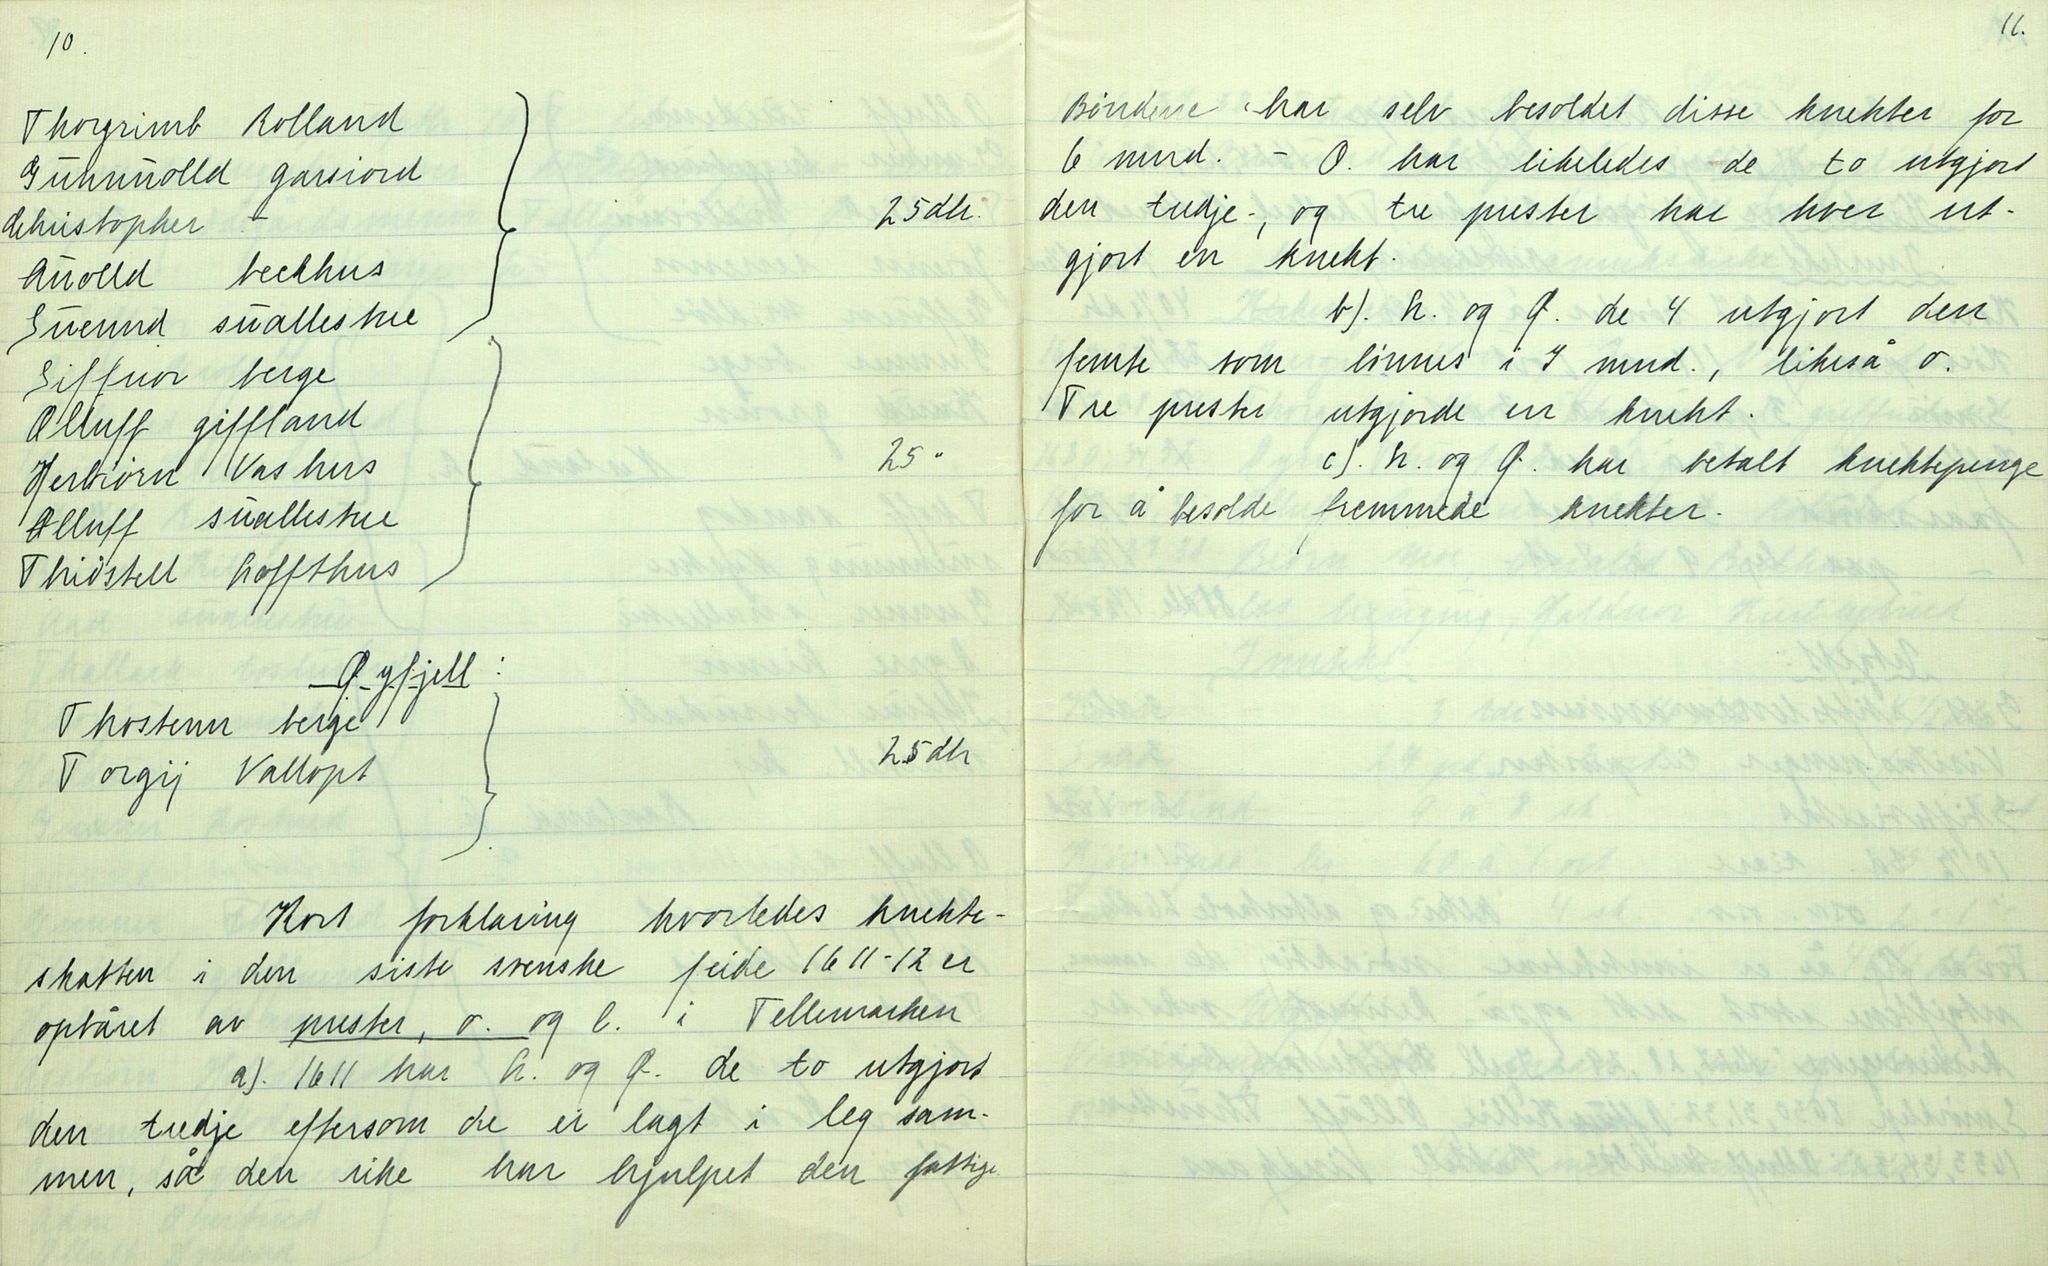 10.
Thorgrimb Rolland
Gŭnnŭolld garsiord
christopher - 25 dlr.
Aŭolld beckhus
Sŭennd sŭallestue
Siffuor berge
Olluff giffland
Herbiørn Vashus 25 "
Olluff sŭallestue
Thiøstell hoffthus
Øyfjell:
Thostenn berge
Torgij Vallopt 25 dlr
Kort forklaring hvorledes knekte-
skatten i den siste svenske feide 1611-12 er
opbåret av prester, o. og l. i Tellemarken
a). 1611 har h. og Ø. de to utgjort
den tredje eftersom de er lagt i leg sam-
men, så den rike har hjulpet den fattige
11.
Bøndene har selv besoldet disse knekter for
6 mnd. - O. har likeledes de to utgjort
den tredje-, og tre prester har hver ut-
gjort en knekt.
b). h. og Ø. de 4 utgjort den
femte som lønnes i 7 mnd., likeså o.
Tre prester utgjorde en knekt.
c). h. og Ø. har betalt knektepenge
for å besolde fremmede knekter.